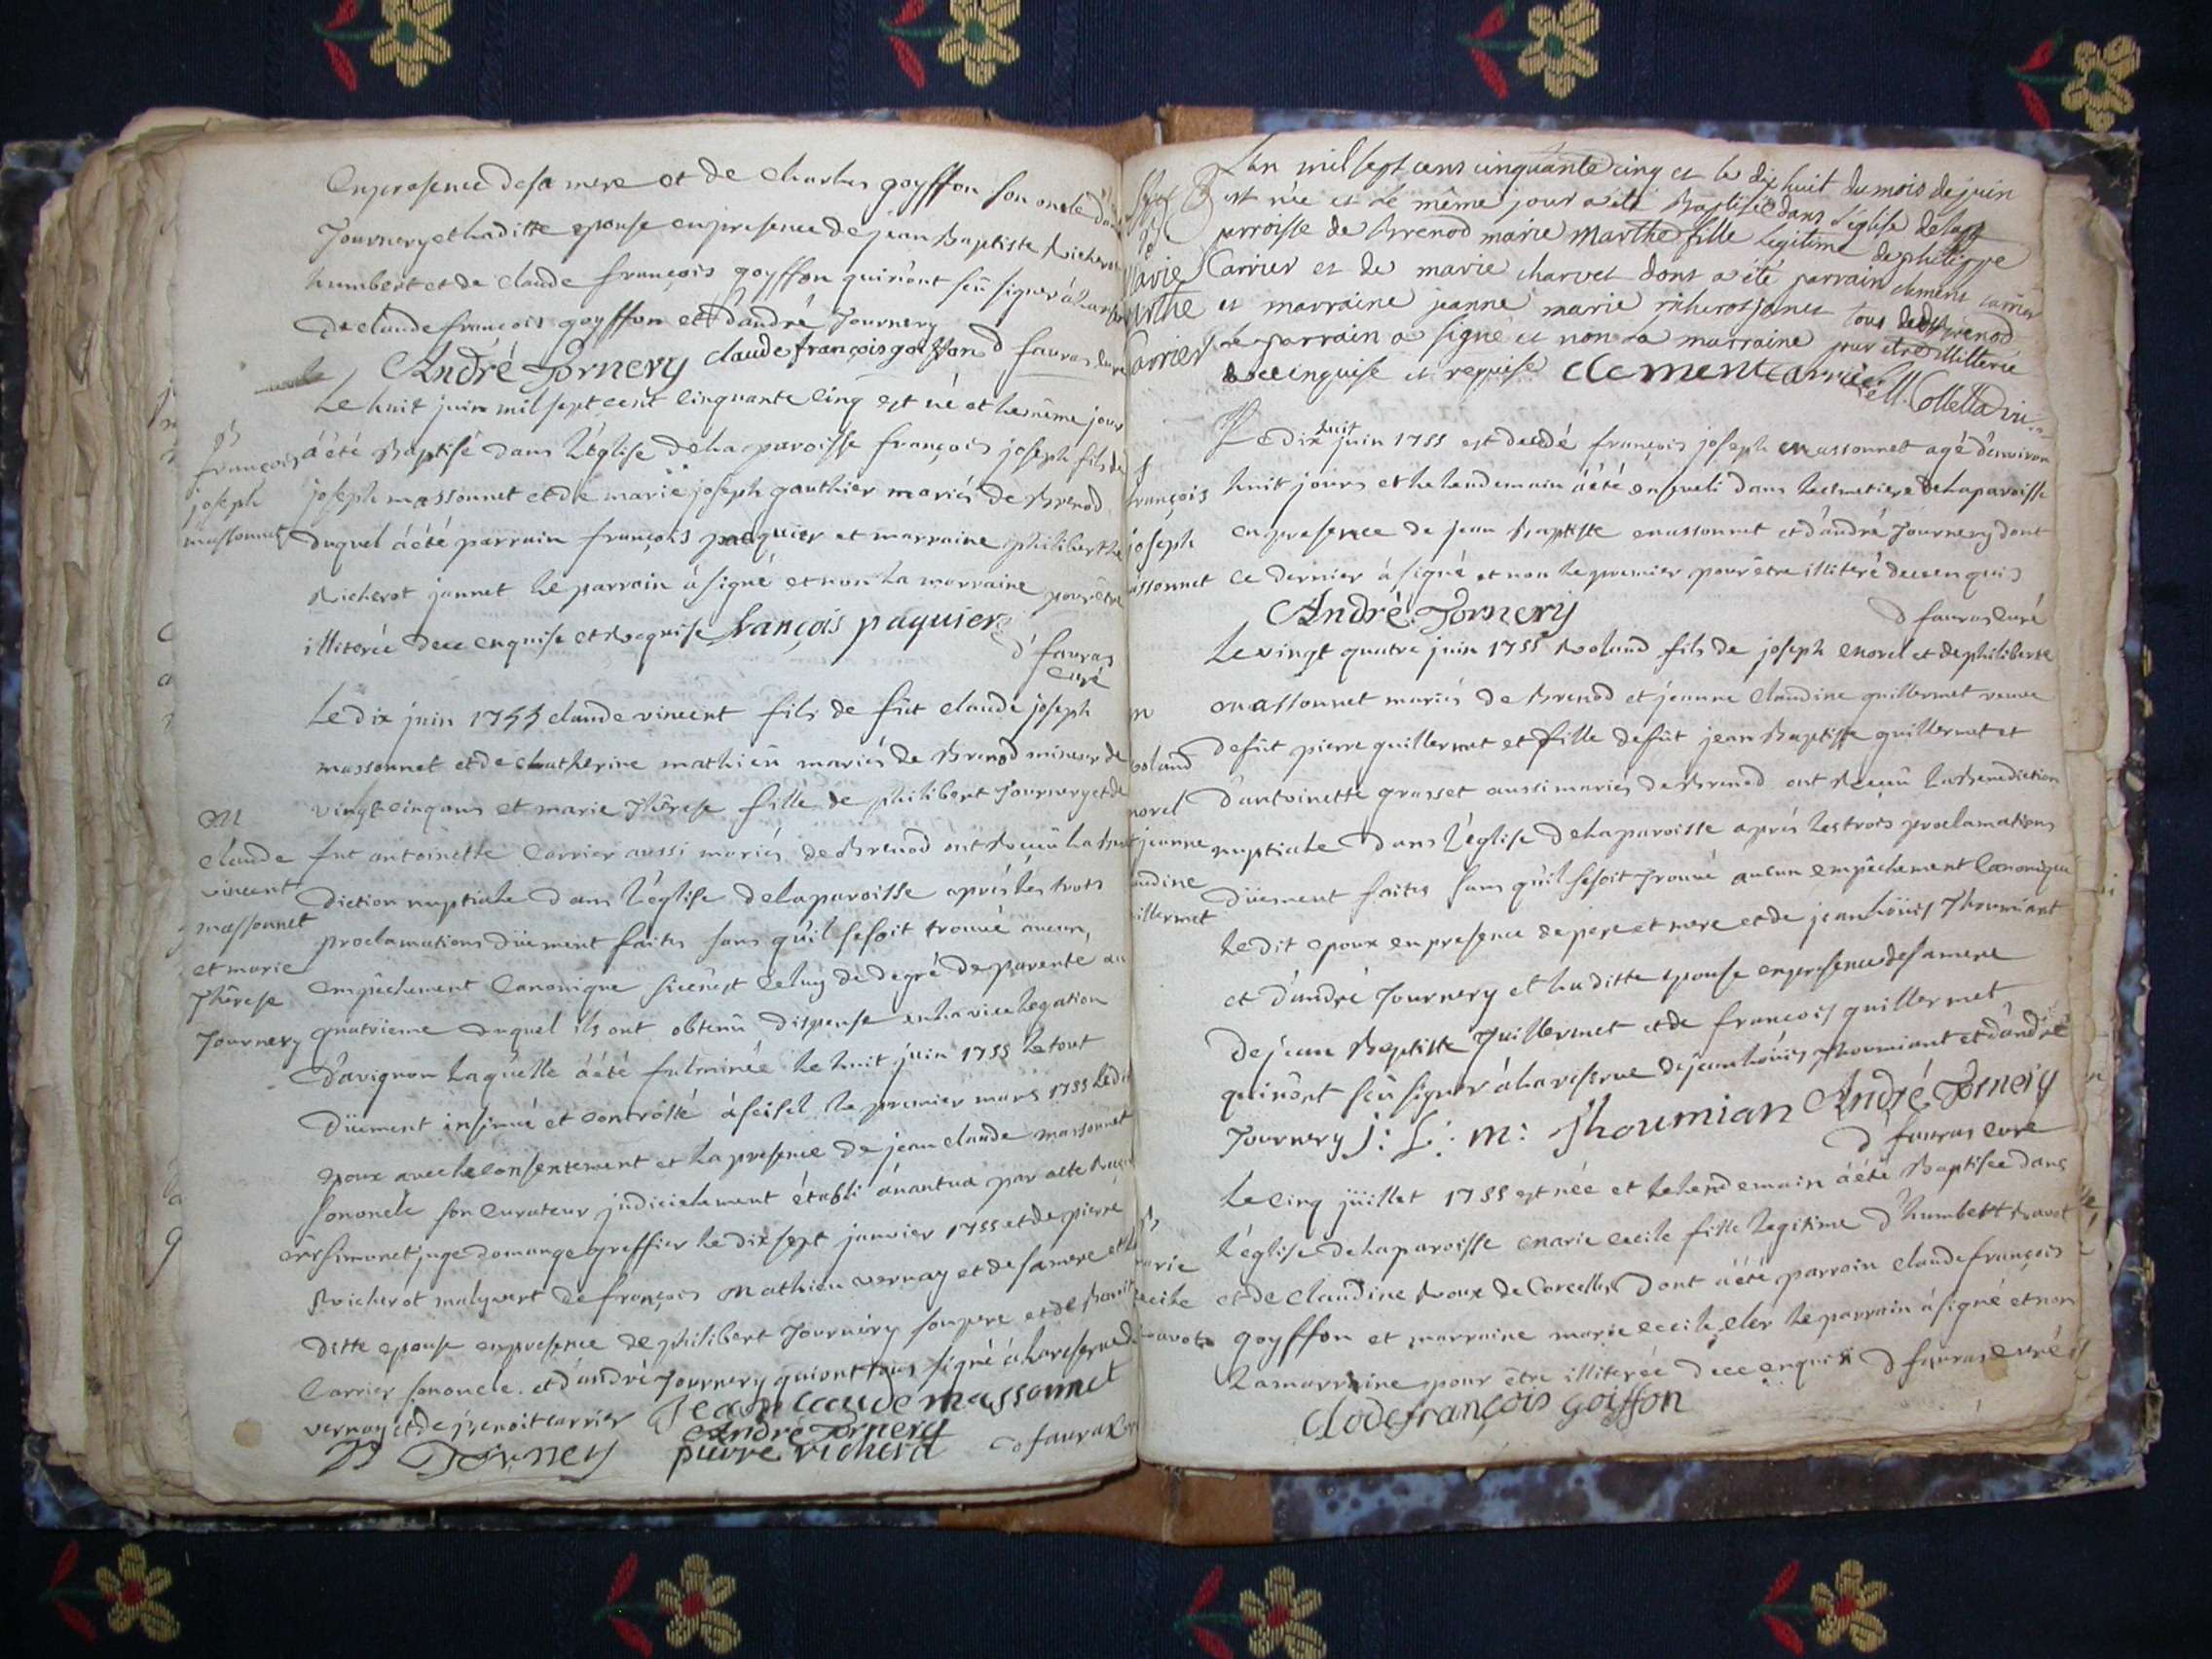 En presence de sa mere et de Charles goyffon son oncle
Journery et la ditte epouse en presence de jean Baptiste Richerot
humbert et de claude françois goyffon qui n'ont sçû signer à la
de claude françois goyffon et d'andré Journery
André Jornery claude françois goiffon d fauras curé
Le huit juin mil sept cent cinquante cinq est né et le même jour
B
françois
joseph
massonnet
à été Baptisé dans l'Eglise de la paroisse françois joseph fils de
joseph massonnet et de marie joseph gauthier mariés de Brenod
duquel à été parrain françois paquier et marraine philiberthe
Richerot jannet le parrain à signé et non la marraine pour être
illiterée de ce enquise et requise françois paquier
d fauras
curé
Le dix juin 1755 claude vincent fils de fut claude joseph
massonnet et de chatherine mathieu mariés de Brenod mineur de
vingt cinq ans et marie Thêrese fille de philibert Journery et de
M
claude
vincent
massonnet
et marie
Thêrese
Journery
fut antoinette Carrier aussi mariés de Brenod ont Reçeu la bene
diction nuptiale dans l'église de la paroisse aprés les trois
proclamations düement faites sans qu'il se soit trouvé aucun
empêchement Canonique si ce n'est celuy de degré de parente au
quatrieme duquel ils ont obtenu dispense en la vice legation
d'avignon laquelle à été fulminée le huit juin 1755 le tout
Düement insinué et controllé à seisel le premier mars 1755 le dit
epoux avec le consentement et la presence de jean claude massonnet
son oncle son Curateur judicielement établi à nantua par acte
simonet juge domange greffier le dix sept janvier 1755 et de pierre
Richerot malyvert de françois Mathieu vernay et de sa mere et la
ditte epouse en presence de philibert Journery son pere et de Benoit
Carrier son oncle et d'andré Journery qui ont tous signé à la reserve de
vernay et de Benoit carrier Jean claude massonnet
André Jornery
P Jorney pierre richerd d fauras
L'an mil sept cens cinquante cinq et le dix huit du mois de juin
est née et le même jour a été Baptisée dans l'église de la
parroisse de Brenod marie Marthe fille legitime de philippe
Marie
Marthe
Carrier
Carrier et de marie charvet dont a été parrain clement carrier
et marraine jeanne marie richerot janet tous de Brenod
Le parrain a signé et non la marraine pour etre illiterée
de ce enquise et requise clement carrier Colletta
Le dix huit juin 1755 est decedé françois joseph massonnet agé d'environ
françois
joseph
assonnet
huit jours et le lendemain à été enseveli dans le cimetiere de la paroisse
en presence de jean Baptiste massonnet et d'andré Journery dont
ce dernier à signé et non le premier pour être illiteré de ce enquis
André Jornery d fauras curé
Le vingt quatre juin 1755 Roland fils de joseph morel et de philiberte
massonnet mariés de Brenod et jeanne Claudine guillermet veuve
m
Roland
morel
jeanne
udine
illermet
de fût pierre guillermet et fille de fût jean Baptiste guillermet et
d'antoinette grasset aussi mariés de Brenod ont Reçeû la Benediction
nuptiale dans l'église de la paroisse aprés les trois proclamations
düement faites sans qu'il se soit trouvé aucun empêchement Canonique
le dit epoux en presence de pere et mere et de jean loüis Thoumiant
et d'andré Journery et la ditte epouse en presence de sa mere
de jean Baptiste guillermet et de françois guillermet
qui n'ont sçû signer à la reserve de jean loüis thoumiant et d'andré
Journery j: L: m: Thoumian André Jornery
d fauras curé
Le cinq jüillet 1755 est née et le lendemain à été Baptisée dans
B
marie
cecile
ravot
l'église de la paroisse marie cecile fille legitime d'humbert Ravot
et de claudine Roux de Corcelles dont à été parrain claude françois
goyffon et marraine marie cecile eler le parrain à signé et non
la marraine pour être illiterée de ce enquise d fauras curé
clode françois goiffon